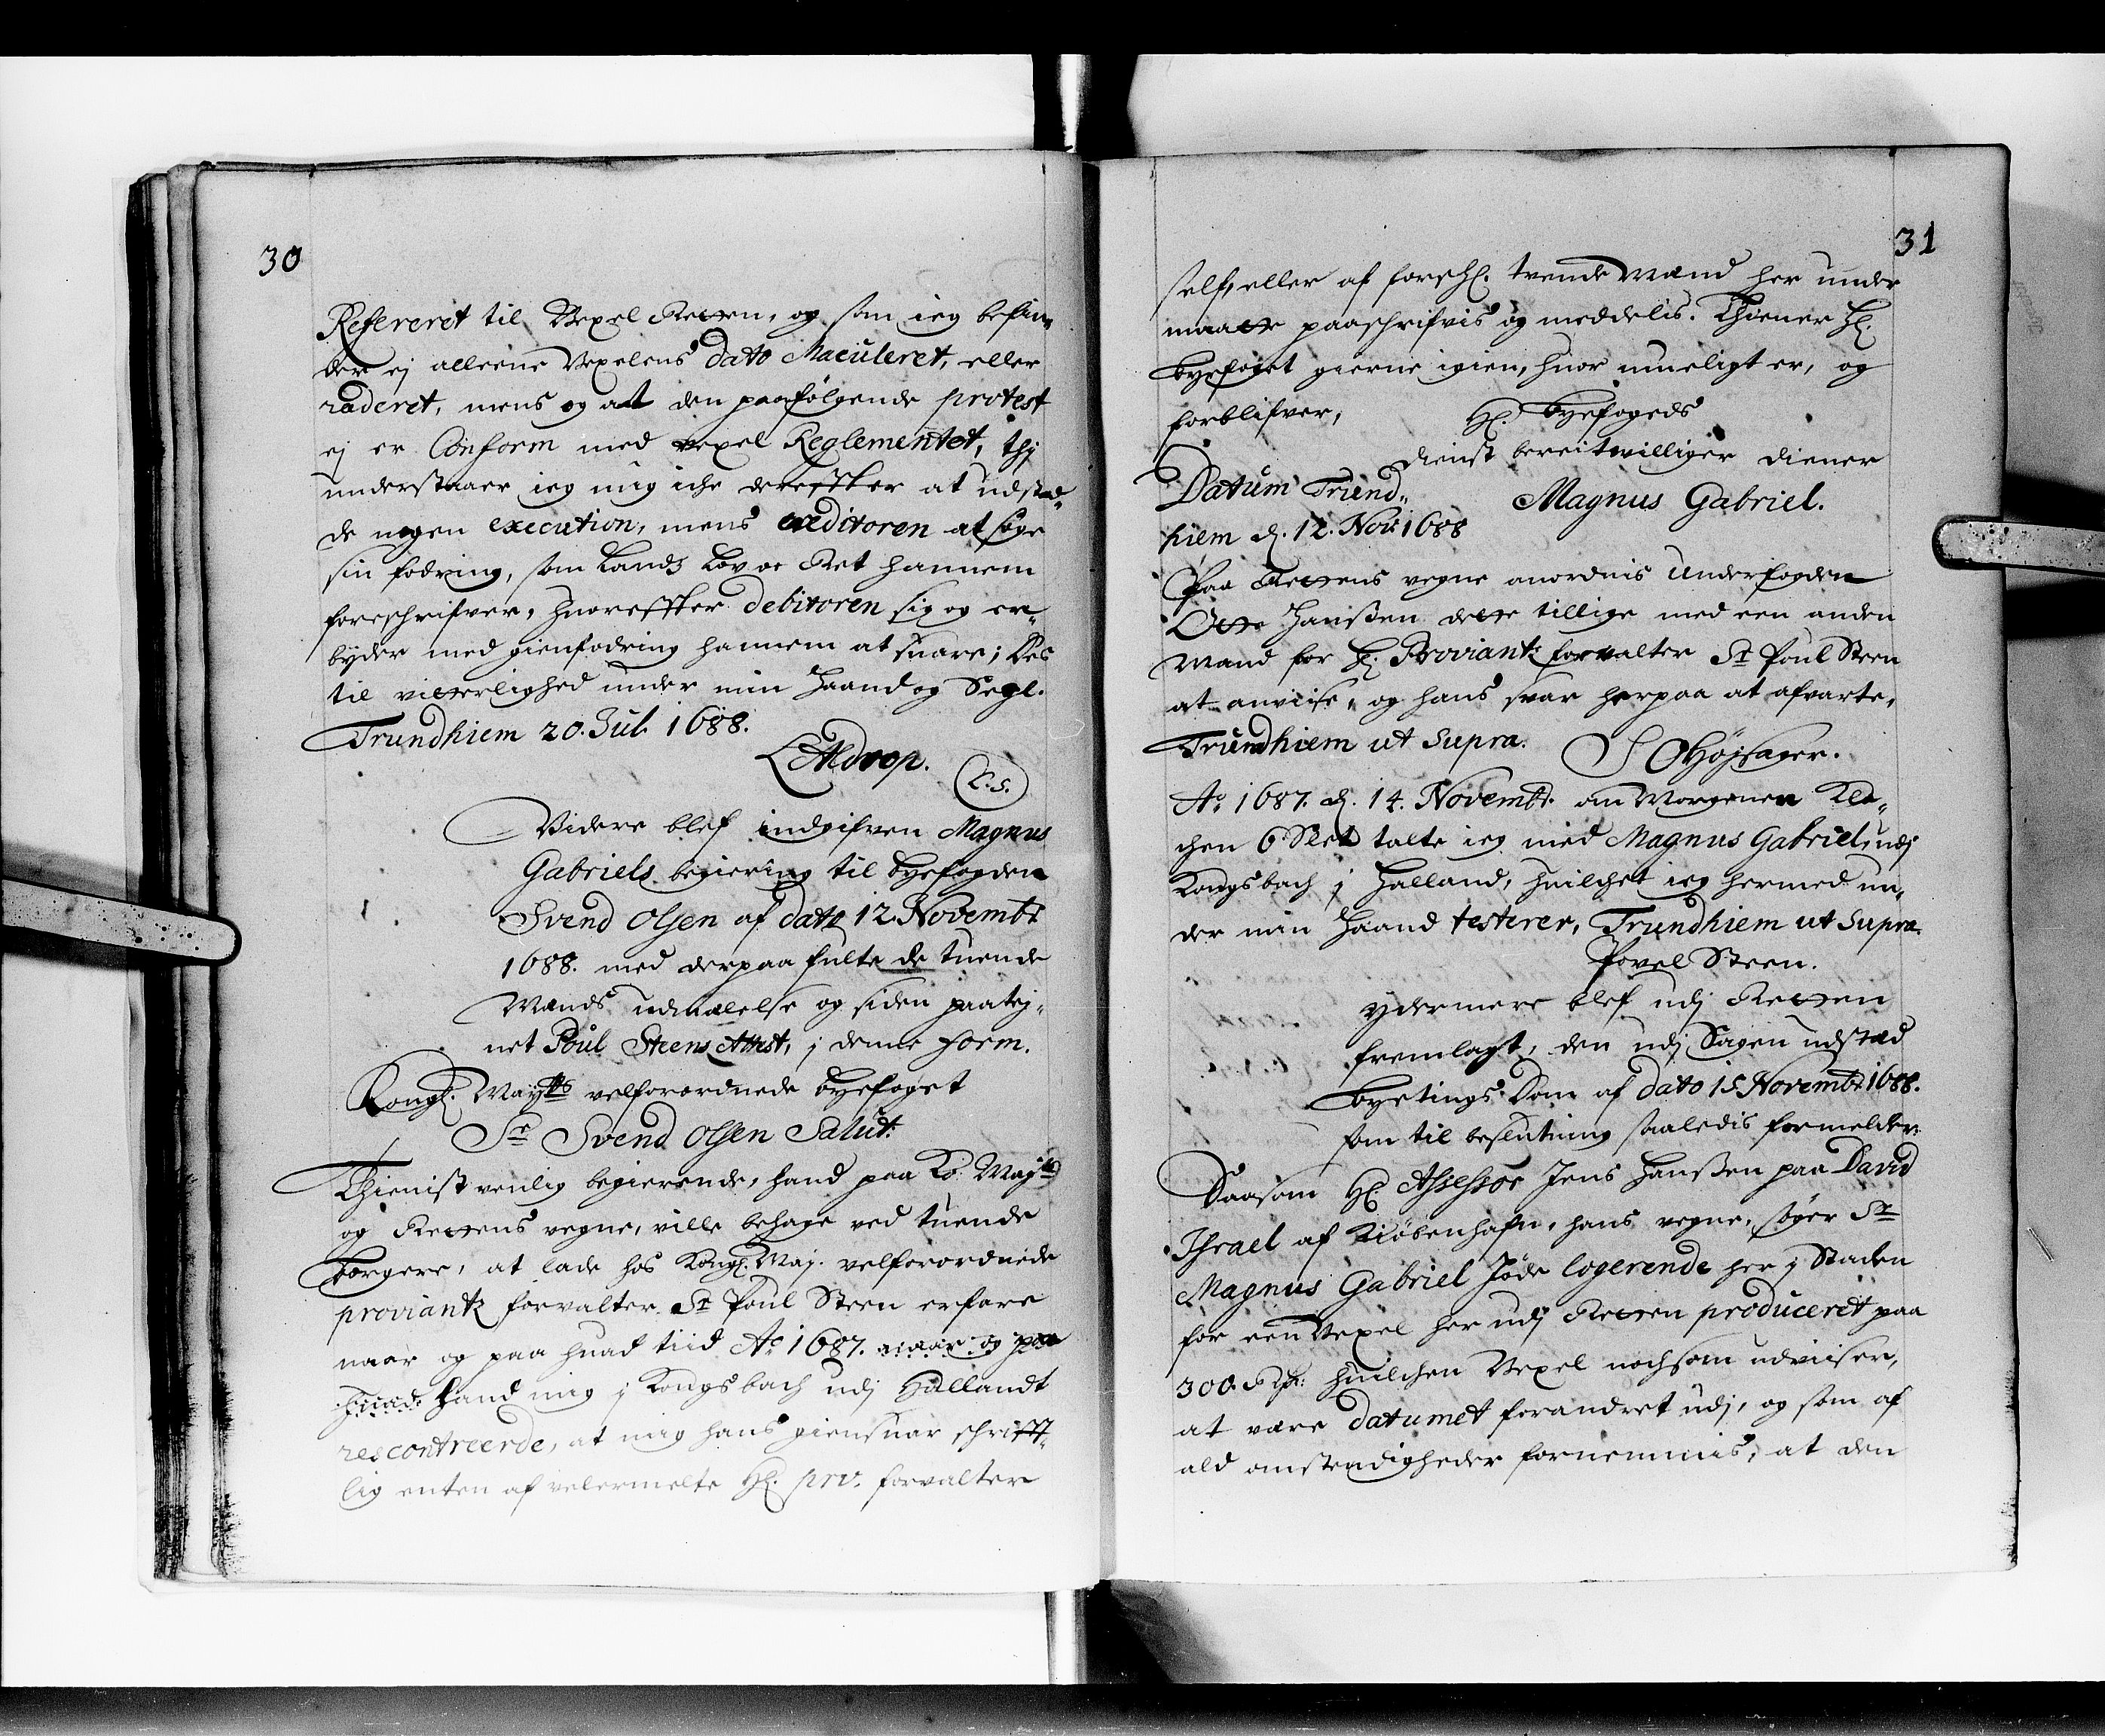 30
Refereret til Vexel Retten, og som ieg befin„
der ej alleene Vexelens dato Maculeret, eller
raderet, mens og at den paafølgende protest
ej er Conform med vexel Reglementet, thj
understaaer ieg mig iche derefter at udstæ„
de nogen execution, mens creditoren at søge
sin fodring, som Landz Lov oc Ret hannem
foreschrifver, huorefter debitoren sig og er„
byder med gienfodring hannem at suare; Des
til vitterlighed under min Haand og Segl.
Trundhiem 20. Jul. 1688.
L. S.
Videre blef indgifven Magnus
Gabriels begiering til byefogden
Svend Olsen af dato 12. Novembr
1688. med derpaa fulte de tuende
Mænds udmælelse og siden paatej„
net Poul Steens Attest, j denne form.
Kongl. Maytts velforordnede byefoget
Sr Svend Olsen Salut:
Thienistvenlig begierende, hand paa Ko. Maytt
og Rettens vegne, ville behage ved tuende
borgere, at lade hos Kongl. May. velforordnede
proviantz forvalter Sr Poul Steen erfare
naar og paa huad tiid Ao 1687. naar og paa
huad hand mig j Kongsbach udj Hallandt
rescontreerde, at mig hans giensuar schrifft„
lig enten af velermelte Hl. prv. forvalter
31
self, eller af forschl. tvende Mænd her under
maatte paaschrifvis og meddelis. Thiener Hl.
byefoget gierne igien, huor mueligt er, og
forblifver,
Hl. byefogeds
dienst bereitwilliger diener
Datum Trund„
Magnus Gabriel.
hiem d. 12. Novr 1688
Paa Rettens vegne anordnis Underfogden
Otte Hanßen dette tillige med een anden
Mand for Hl. Proviantz forvalter Sr Poul Steen
at anviise, og hans svar herpaa at afvarte,
Trundhiem ut Supra.
S O Højsager.
Ao 1687. d. 14. Novembr. om Morgenen Klo„
chen 6 Slet talte ieg med Magnus Gabriel, udj
Kongsbach j Halland, huilchet ieg hermed un„
der min Haand testerer, Trundhiem ut Supra
Povel Steen.
ydermere blef udj Retten
fremlagt, den udj Sagen udstæd
byetings Dom af dato 15. Novembr 1688.
som til beslutning saaledis formelder:
Saasom Hl. Assessor Jens Hanßen paa David
Israel af Kiøbenhafn, hans vegne, søger Sr
Magnus Gabriel Jøde logerende her j Staden
for een Vexel her udj Retten produceret paa
300. Rdr: huilchen Vexel nochsom udviiser,
at være datumet forandret udj, og som af
ald omstendigheder fornemmis, at den